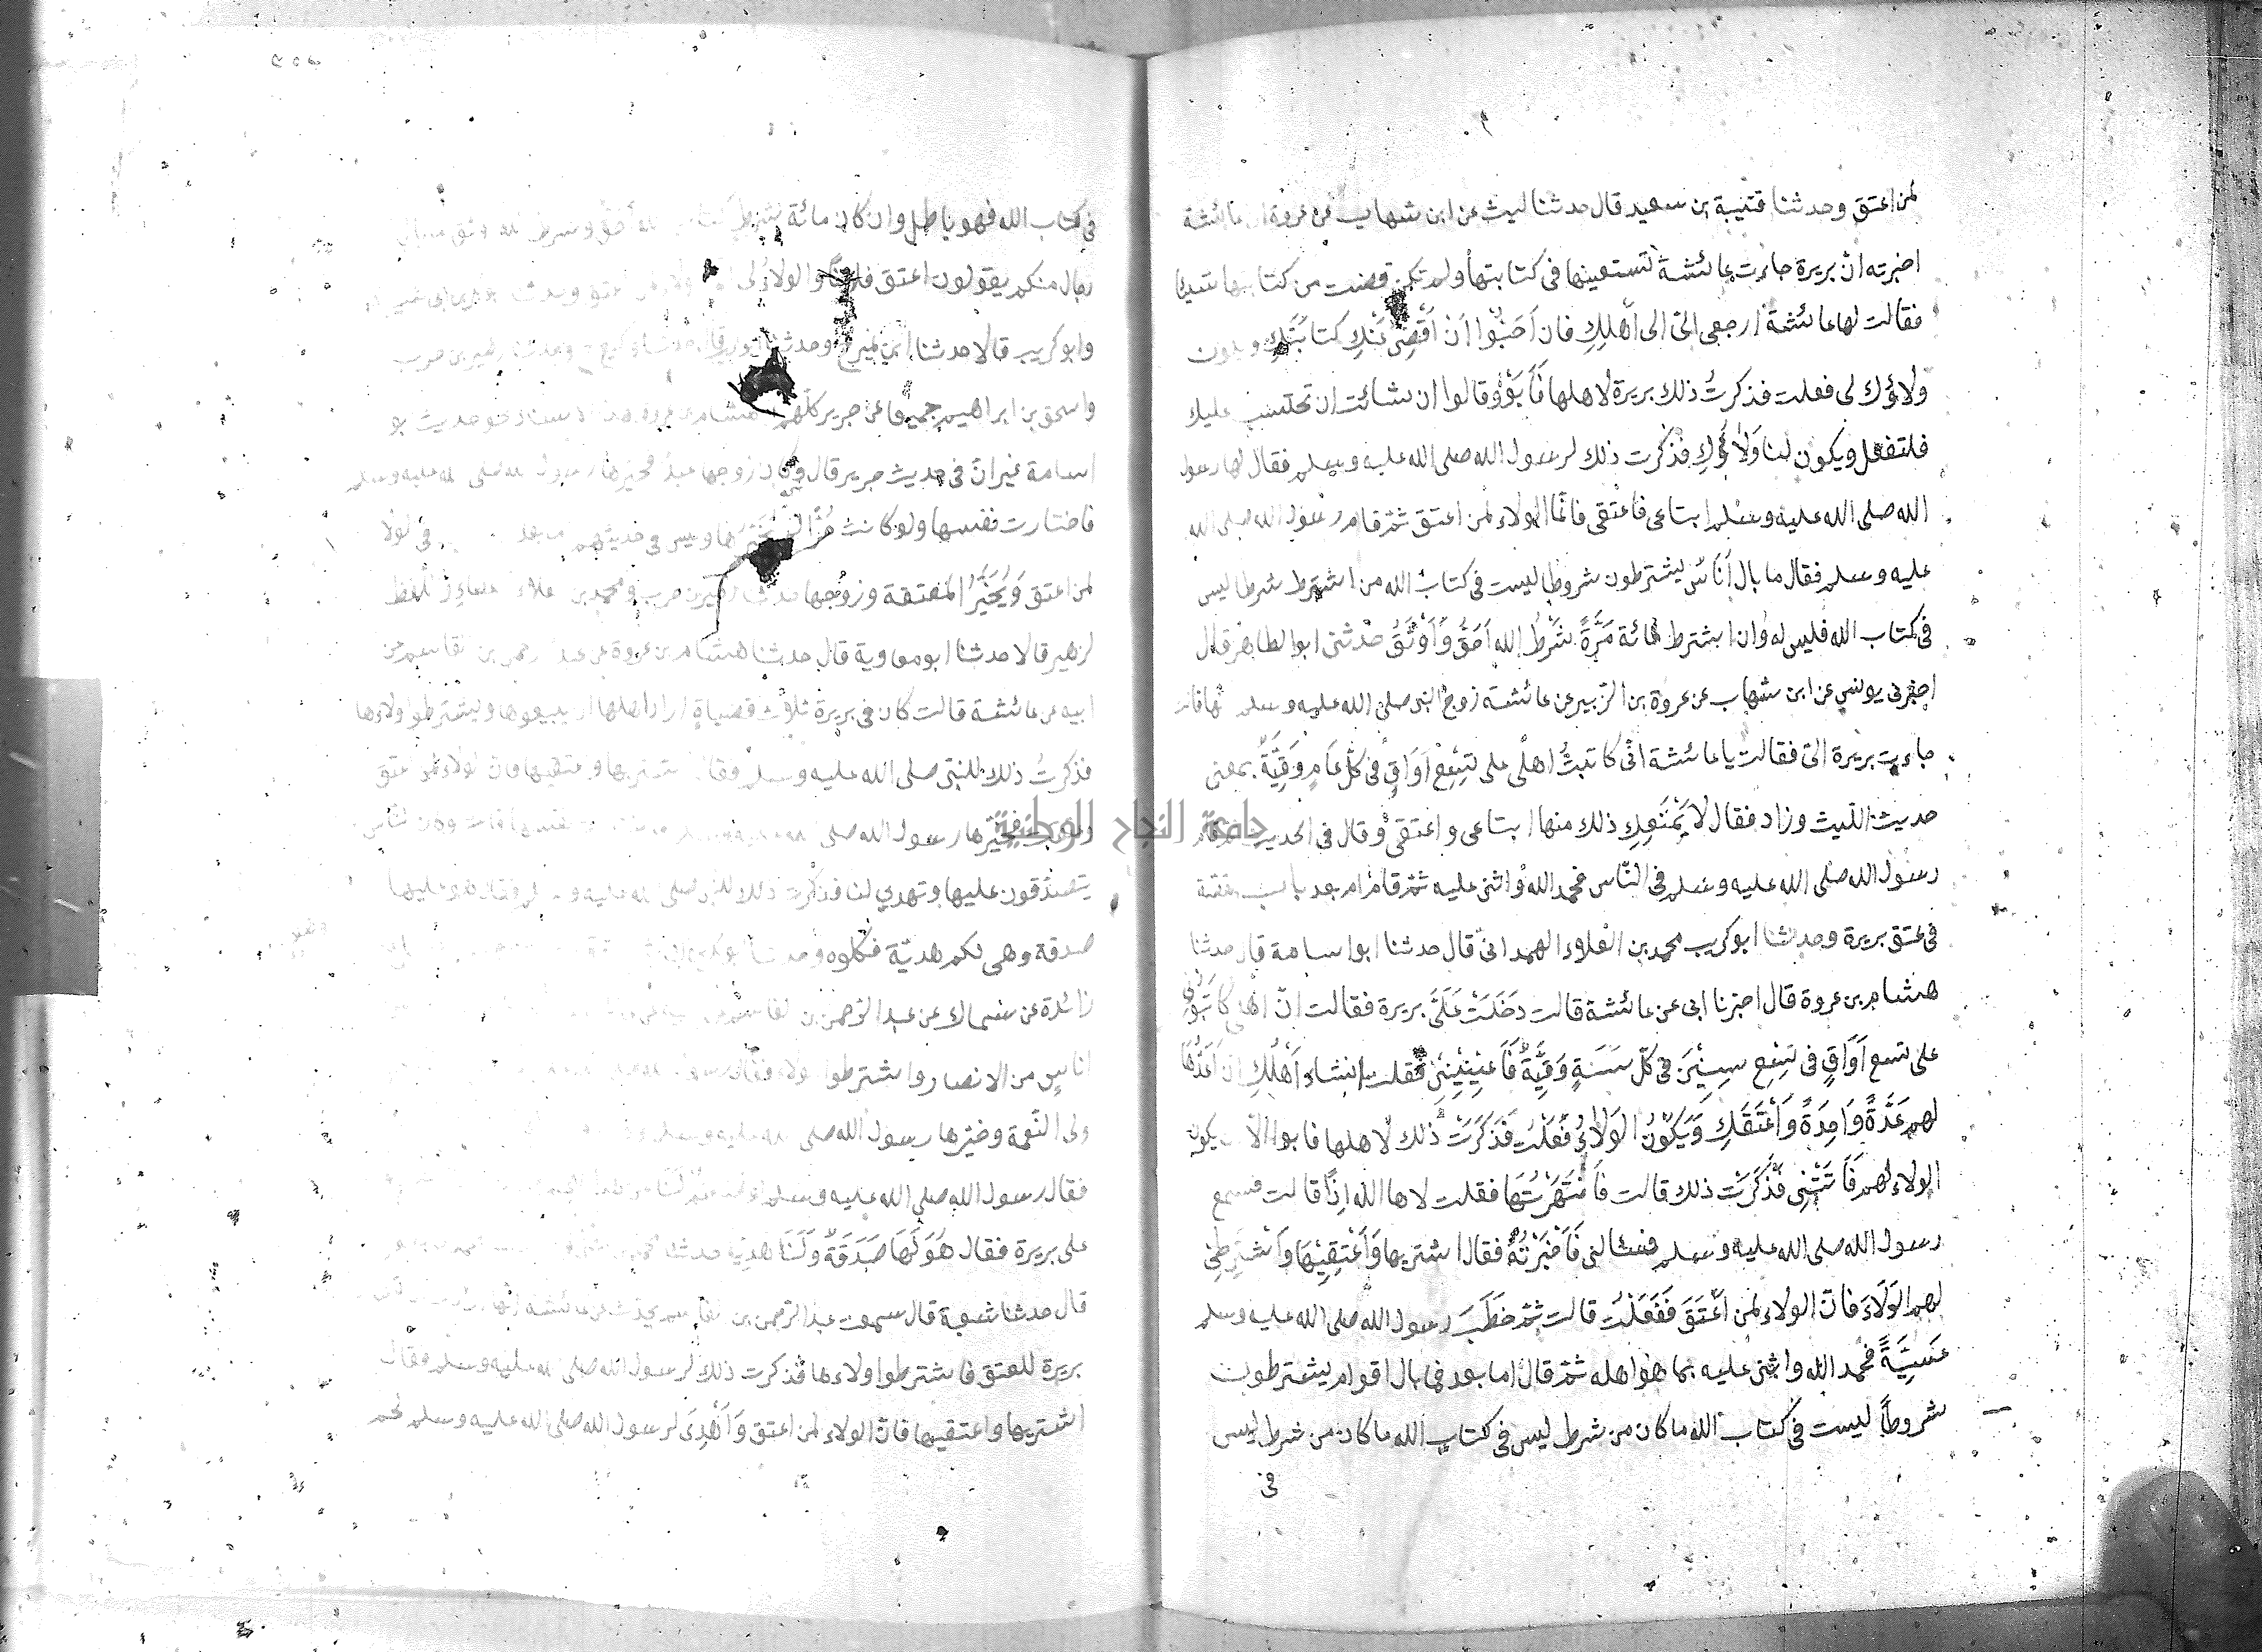 لمن اعتق وحدثنا قتيبة بن سعيد قال حدثنا ليث عن ابن شهاب عن عروة ان عائشة
اخبرته انّ بريرة جاءت عائشة تستعينها فى كتابتها ولم تكن قضت من كتابتها شيئا
فقالت لها عائشة ارجعى الى اهلك فان اَحَبّوا اَنْ اَقْضِىَ عَنْكِ كتابَتَكِ ويكون
ولاؤك لى فعلت فذكرتْ ذلك بريرة لاهلها فَاَبَوْا وقالوا ان شائت ان تحتسب عليك
فلتفعل ويكون لنا وَلاؤُكِ فذكرت ذلك لرسول الله صلى الله عليه وسلم فقال لها رسول
الله صلى الله عليه وسلم ابتاعى فاعتقى فانّما الولاء لمن اعتق ثمّ قام رسول الله صلى الله
عليه وسلم فقال ما بال اُنَاسٍ يشترطون شروطا ليست فى كتاب الله من اشترط شرطا ليس
فى كتاب الله فليس له وان اشترط مائة مَرّةً شَرْطُ الله اَحَقُّ وَاَوْثَقُ حدثنى ابو الطاهر قال
اخبرنى يونس عن ابن شهاب عن عروة بن الزّبير عن عائشة زوج النبى صلى الله عليه وسلم انها قالت
جاءت بريرة الىّ فقالت يا عائشة انّى كاتبتُ اهلى على تِسْعِ اَوَاقٍ فى كلّ عَامٍ وَقِيَّةٌ بمعنى
حديث اللّيث وزاد فقال لا يَمْنَعُكِ ذلك منها ابتاعى واعتقى وقال فى الحديث ثم قام
رسول الله صلى الله عليه وسلم فى النّاس فحمد الله واثنى عليه ثمّ قام اما بعد باب
فى عتق بريرة وحدثنا ابو كريب محمد بن العلاء الهمدانىّ قال حدثنا ابو اسامة قال حدثنا
هشام بن عروة قال اخبرنا ابى عن عائشة قالت دَخَلَتْ عَلَىَّ بريرة فقالت انّ اهلى كاتَبُونى
على تسع اَوَاقٍ فى تِسْعِ سِنِيْنَ فى كلّ سَنَةٍ وَقِيَّةٌ فَاَعِيْنِيْنِىْ فقلت انشاء اَهْلُكِ اَنْ اَعُدَّهَا
لهم عَدَّةً وَاحِدَةً وَاُعْتِقَكِ وَيَكُوْنُ الوَلاءُ لى فَعَلْتُ فَذَكَرَتْ ذلك لاهلها فابوا الّا ان يكون
الولاء لهم فَاَتَتْنِى فَذَكَرَتْ ذلك قالت فَانْتَهَرْتُهَا فقلت لاها الله اِذًا قالت فسمع
رسول الله صلى الله عليه وسلم فسئالنى فَاَخْبَرْتُهُ فقال اشتريها وَاَعْتِقِيْهَا وَاشْتَرِطِىْ
لهم الوَلَاءَ فانّ الولاء لمن اَعْتَقَ فَفَعَلْتُ قالت ثمّ خَطَبَ رسول الله صلى الله عليه وسلم
عَشِيَّةً فحمد الله واثنى عليه بما هو اهله ثمّ قال اما بعد فما بال اقوام يشترطون
شروطًا ليست فى كتاب الله ما كان من شرط ليس فى كتاب الله ما كان من شرط ليس
فى
فى كتاب الله فهو باطل وان كان مائة شرط كتاب الله احقّ وشرط الله اوثق ما بال
رجال منكم يقولون اعتق فلانا والولاء لى
وابو كريب قالا حدثنا ابن نمير ح وحدثنا ابو كريب قال حدثنا وكيع ح وحدثنا زهير بن حرب
واسحق بن ابراهيم جميعا عن جرير كلّهم عن هشام بن عروة بهذا الاسناد نحو حديث ابو
اسامة غير انّ فى حديث جرير قال وكان زوجها عبدٌ فخيّرها رسول الله صلى الله عليه وسلم
فاختارت نفسها ولو كانت حُرًّا لم يُخَيّرها وليس فى حديثهم اما بعد
لمن اعتق وَيُخَيَّرُ المعتقة وزوجها حدثنا زهير بن حرب ومحمد بن العلاء واللفظ
لزهير قالا حدثنا ابو معاوية قال حدثنا هشام بن عروة عن عبد الرحمن بن القاسم عن
ابيه عن عائشة قالت كان فى بريرة ثلاث قضياة اراد اهلها ان يبيعوها ويشترطوا ولاءها
فذكرتُ ذلك للنبىّ صلى الله عليه وسلم فقال اشتريها واعتقيها فان الولاء لمن اعتق
وعتقت فخيّرها رسول الله صلى الله عليه وسلم فاختارت نفسها قالت وكان النّاس
يتصدّقون عليها وتهدى لنا فذكرت ذلك للنبى صلى الله عليه وسلم فقال هو عليها
صدقة وهى لكم هديّة فكلوه وحدثنا ابو بكر
زائدة عن سماك عن عبد الرّحمن بن القاسم
اناس من الانصار واشترطوا الولاء فقال رسول الله
ولى النّعمة وخيّرها رسول الله صلى الله عليه وسلم
فقال رسول الله صلى الله عليه وسلم
على بريرة فقال هُوَ لَهَا صَدَقَةٌ وَلَنَا هديّة حدثنا محمد بن
قال حدثنا شعبة قال سمعت عبد الرّحمن بن القاسم يحدّث عن عائشة انّها
بريرة للعتق فاشترطوا ولاءها فذكرت ذلك لرسول الله صلى الله عليه وسلم فقال
اشتريها واعتقيها فانّ الولاء لمن اعتق وَاُهْدِىَ لرسول الله صلى الله عليه وسلم لحم
جامعة النجاح الوطنية